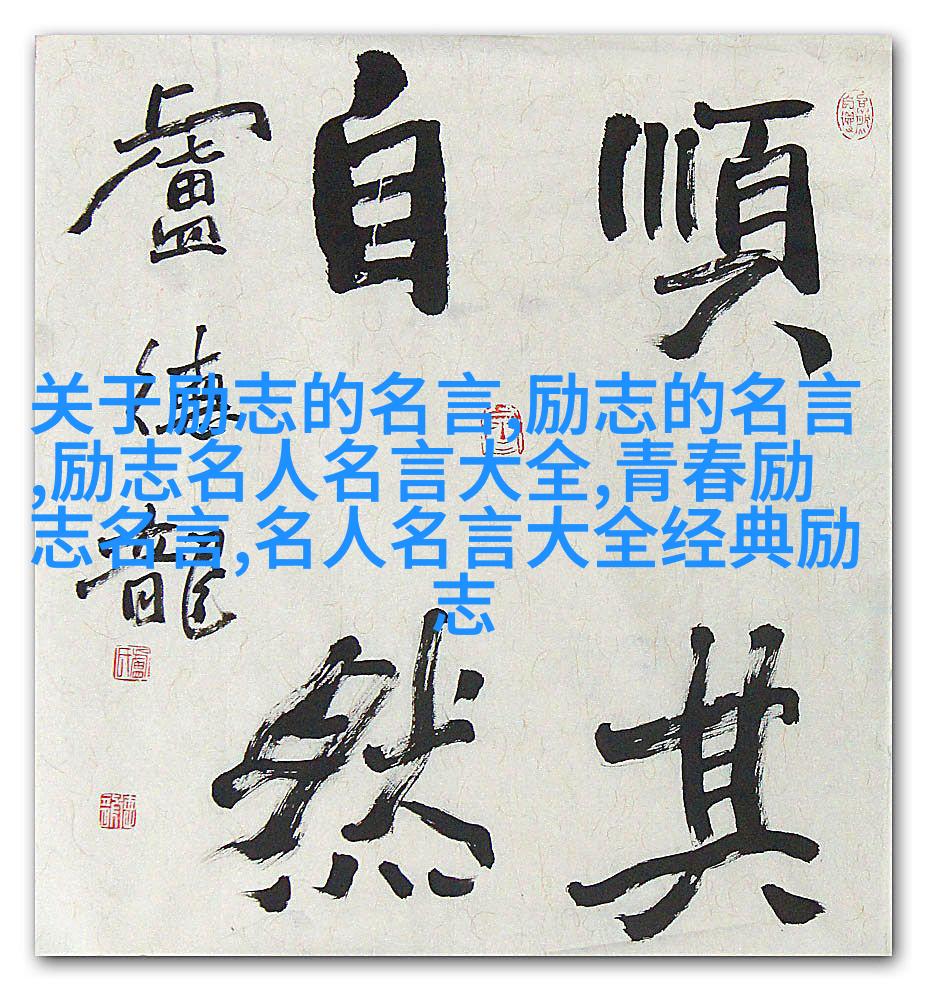 順其
自然
盧德龍
关于励志的名言,励志的名言
,励志名人名言大全,青春励
志名言,名人名言大全经典励
志